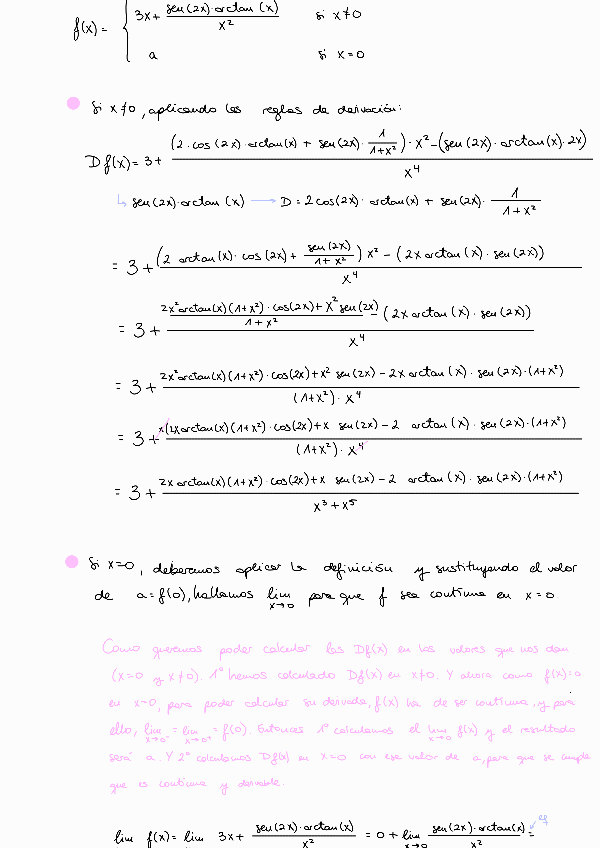 f(x) = { 3x + sen(2x)·arctan(x) / x² si x≠0
a si x=0
Si x≠0, aplicando las reglas de derivación:
Df(x) = 3 + (2·cos(2x)·arctan(x) + sen(2x)·1/(1+x²))·x² − (sen(2x)·arctan(x)·2x) / x⁴
↳ sen(2x)·arctan(x) ⟶ D = 2cos(2x)·arctan(x) + sen(2x)·1/(1+x²)
= 3 + (2 arctan(x)·cos(2x) + sen(2x)/(1+x²)) x² − (2x arctan(x)·sen(2x)) / x⁴
= 3 + 2x² arctan(x)(1+x²)·cos(2x) + x² sen(2x) / 1+x² − (2x arctan(x)·sen(2x)) / x⁴
= 3 + 2x² arctan(x)(1+x²)·cos(2x) + x² sen(2x) − 2x arctan(x)·sen(2x)·(1+x²) / (1+x²)·x⁴
= 3 + x(2x arctan(x)(1+x²)·cos(2x) + x sen(2x) − 2 arctan(x)·sen(2x)·(1+x²) / (1+x²)·x⁴
= 3 + 2x arctan(x)(1+x²)·cos(2x) + x sen(2x) − 2 arctan(x)·sen(2x)·(1+x²) / x³+x⁵
Si x=0, deberemos aplicar la definición y sustituyendo el valor
de a=f(0), hallamos lim x→0 para que f sea continua en x=0
Como queremos poder calcular las Df(x) en los valores que nos dan
(x=0 y x≠0). 1º hemos calculado Df(x) en x≠0. Y ahora como f(x)=a
en x=0, para poder calcular su derivada, f(x) ha de ser continua, y para
ello, lim x→0⁻ = lim x→0⁺ = f(0). Entonces 1º calculamos el lim x→0 f(x) y el resultado
será a. Y 2º calculamos Df(x) en x=0 con ese valor de a, para que se cumpla
que es continua y derivable.
lim x→0 f(x) = lim x→0 3x + sen(2x)·arctan(x) / x² = 0 + lim x→0 sen(2x)·arctan(x) / x² =